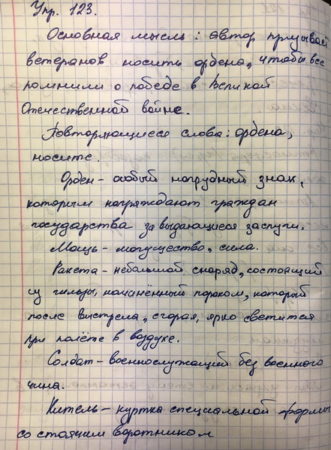 Упр. 123.
Основная мысль: автор призывает
ветеранов носить ордена, чтобы все
помнили о победе в Великой
Отечественной войне.
Повторяющиеся слова: ордена,
носите.
Орден - особый нагрудный знак,
которым награждают граждан
государства за выдающиеся заслуги.
Мощь - могущество, сила.
Ракета - небольшой снаряд, состоящий
из гильзы, начинённый порохом, который
после выстрела, сгорая, ярко светится
при полёте в воздухе.
Солдат - военнослужащий без военного
чина.
Китель - куртка специальной формы
со стоячим воротником